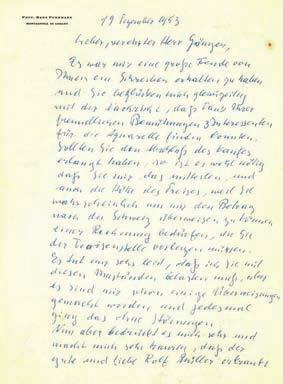 PROF. HANS FUHRMANN
19 Dezember 1953
Lieber, verehrter Herr
Es war mir eine große Freude von
Ihnen ein Schreiben erhalten zu haben
und Sie beglückten mich gleichzeitig
mit der Aussicht, daß Dank Ihrer
freundlichen Bemühungen 3 Interessenten
für die Aquarelle finden konnten.
Sollten Sie den des Kaufes
erlangt haben, so ist es wohl nötig
daß Sie mir, das mitteilen, und
auch die Höhe des Preises, weil Sie
wahrscheinlich um mir den Betrag
nach der Schweiz überweisen zu können
einer Rechnung bedürfen, die Sie
der Devisenstelle vorlegen müssen.
Es tut mir sehr leid, daß ich Sie mit
diesen Umständen belasten muß, aber
es sind mir schon einige Überweisungen
gemacht worden und jedesmal
ging das ohne Störungen
Nun aber bedrückt es mich sehr und
macht mich sehr traurig, daß der
gute und liebe Rolf Müller erkrankt